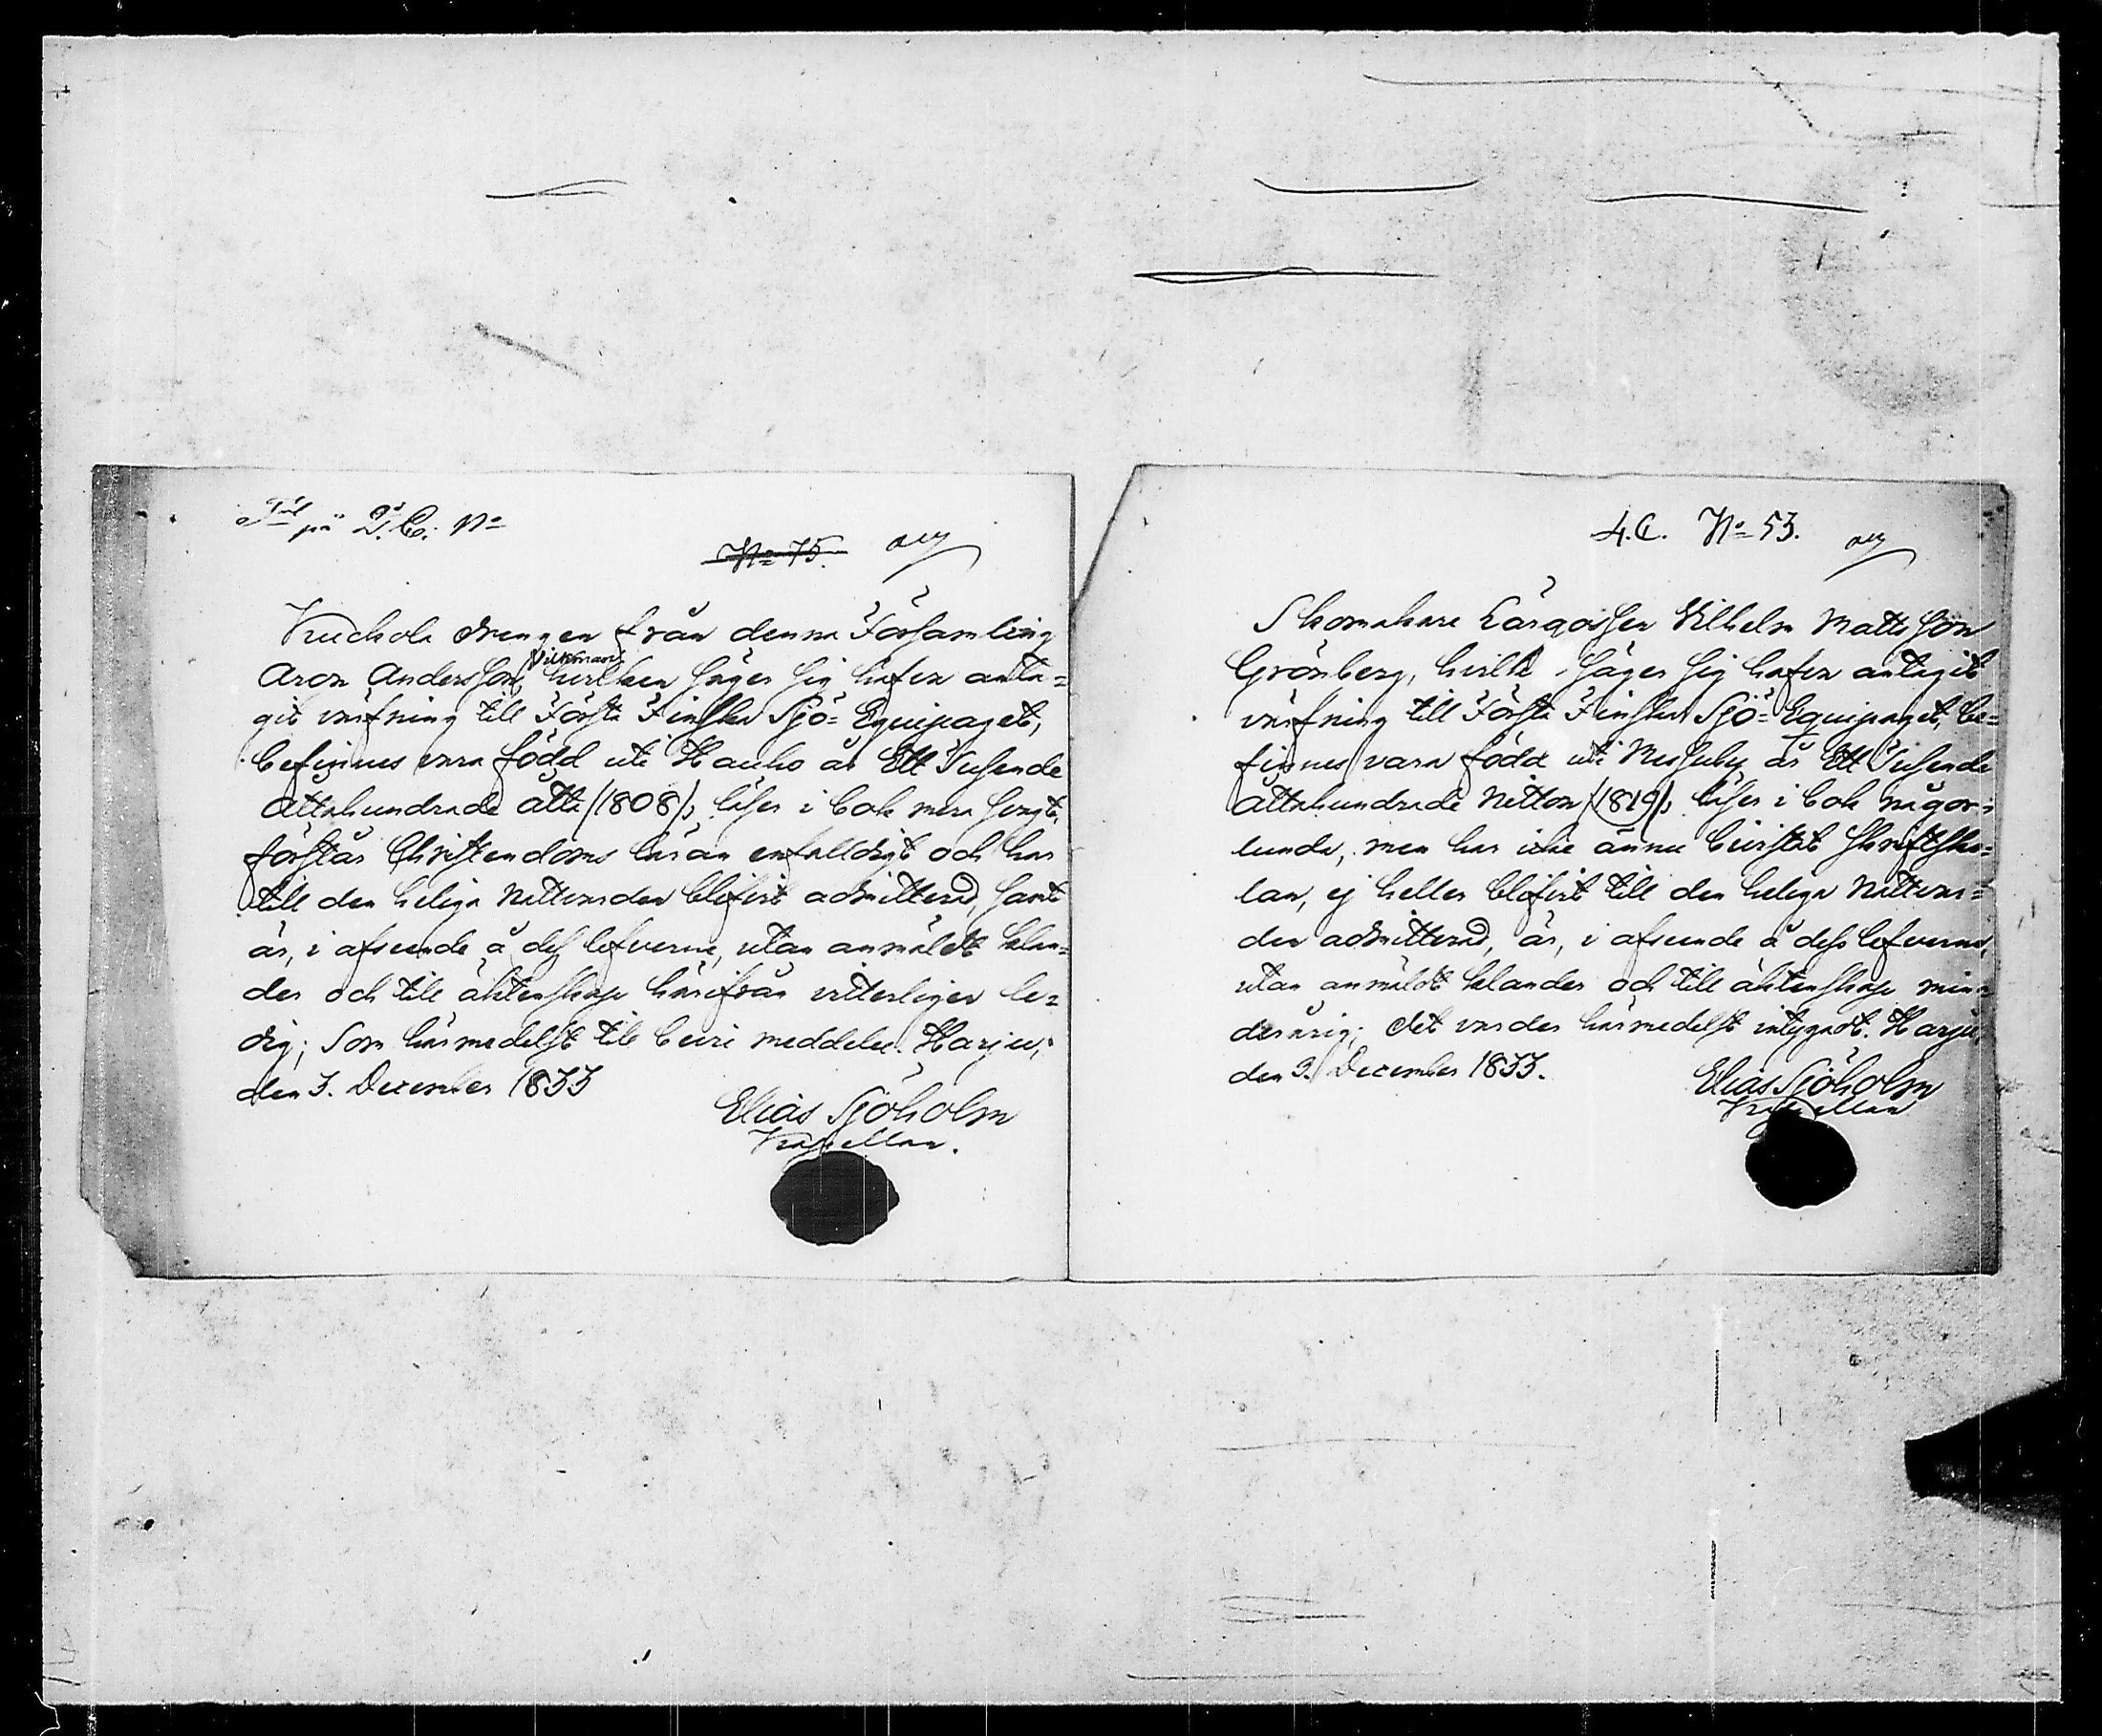 på 2. C. No
No 75.
Kuckola drengen från denna Församling
Vikman
Aron Andersson, hvilken säger sig hafva anta=
git värfning till Första Finska Sjö=Equipaget,
befinnes vara född uti Hauho år Ett Tusende
Åttahundrade åtta /1808/, läser i bok mera svagt,
förstår Christendoms läran enfalldigt och har
till den heliga Nattvarden blifvit admitterad, samt
är, i afseende å dess lefverne, utan anmäldt klan=
der och till äktenskap härifrån vitterligen le=
dig; Som härmedelst till bevis meddelas. Harju,
den 3. December 1833
Elias Sjöholm
Kapellan.
4. C. No 53.
Skomakare Lärgossen Vilhelm Mattsson
Grönberg, hvilk säger sig hafva antagit
värfning till Första Finska Sjö=Equipaget, be=
finnes vara född uti Messuby år Ett Tusende
Åttahundrade Nitton /1819/, läser i bok någor=
lunda, men har icke ännu bevistat Skriftsko=
lan, ej heller blifvit till den heliga Nattvar=
den admitterad, är, i afseende å dess lefverne,
utan anmäldt klander och till äktenskap min=
derårig; det varder härmedelst intygadt. Harju,
den 3. December 1833.
Elias Sjöholm
Kapellan